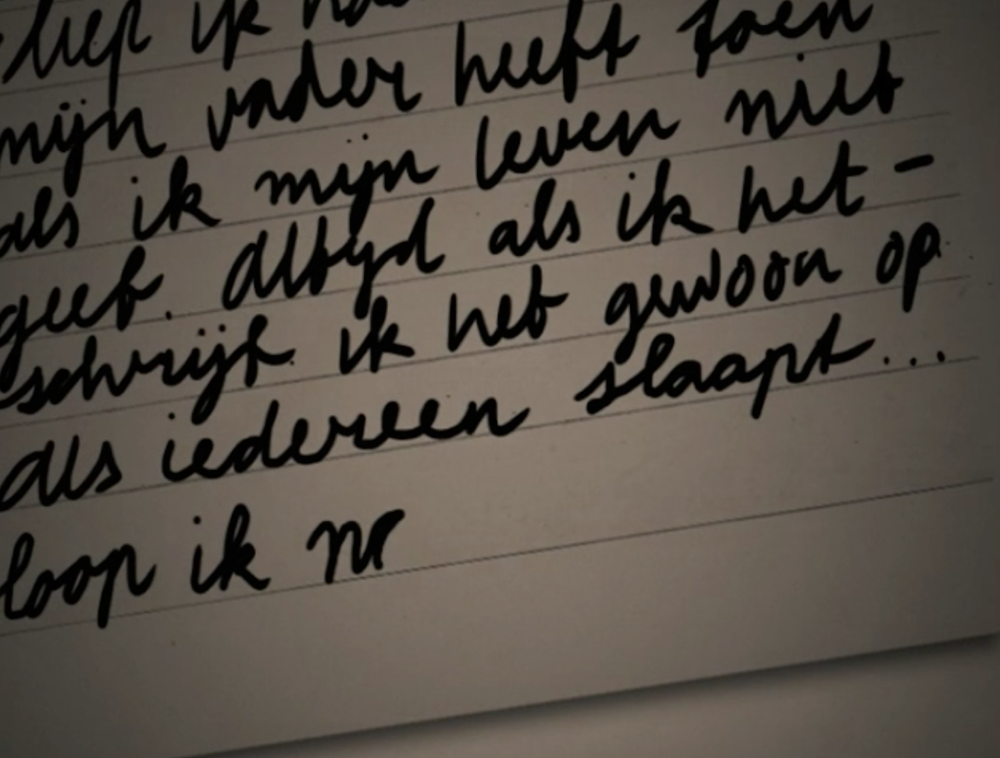 liep ik
mijn vader heeft toen
als ik mijn leven niet
geef. Altijd als ik het -
schrijf ik het gewoon op
als iedereen slaapt...
loop ik